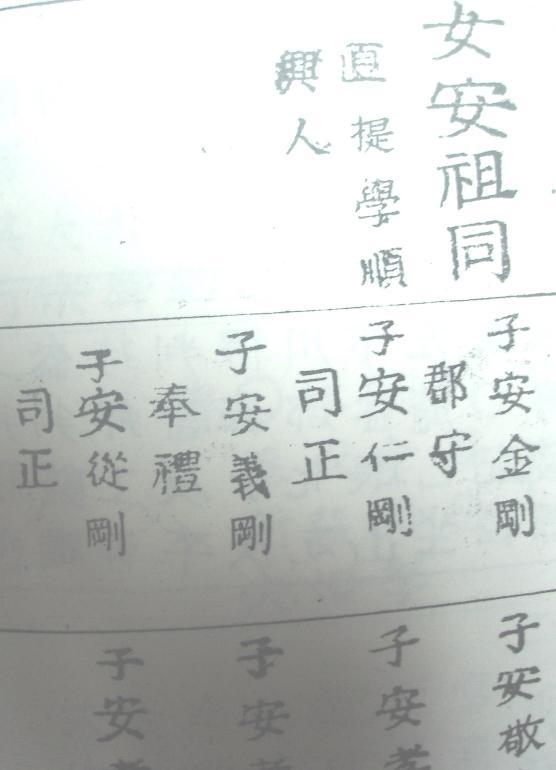 女安祖同
直提學順
興人
子安金剛
郡守
子安仁剛
司正
子安義剛
奉禮
子安從剛
司正
子安敬
子安孝
子安
子安